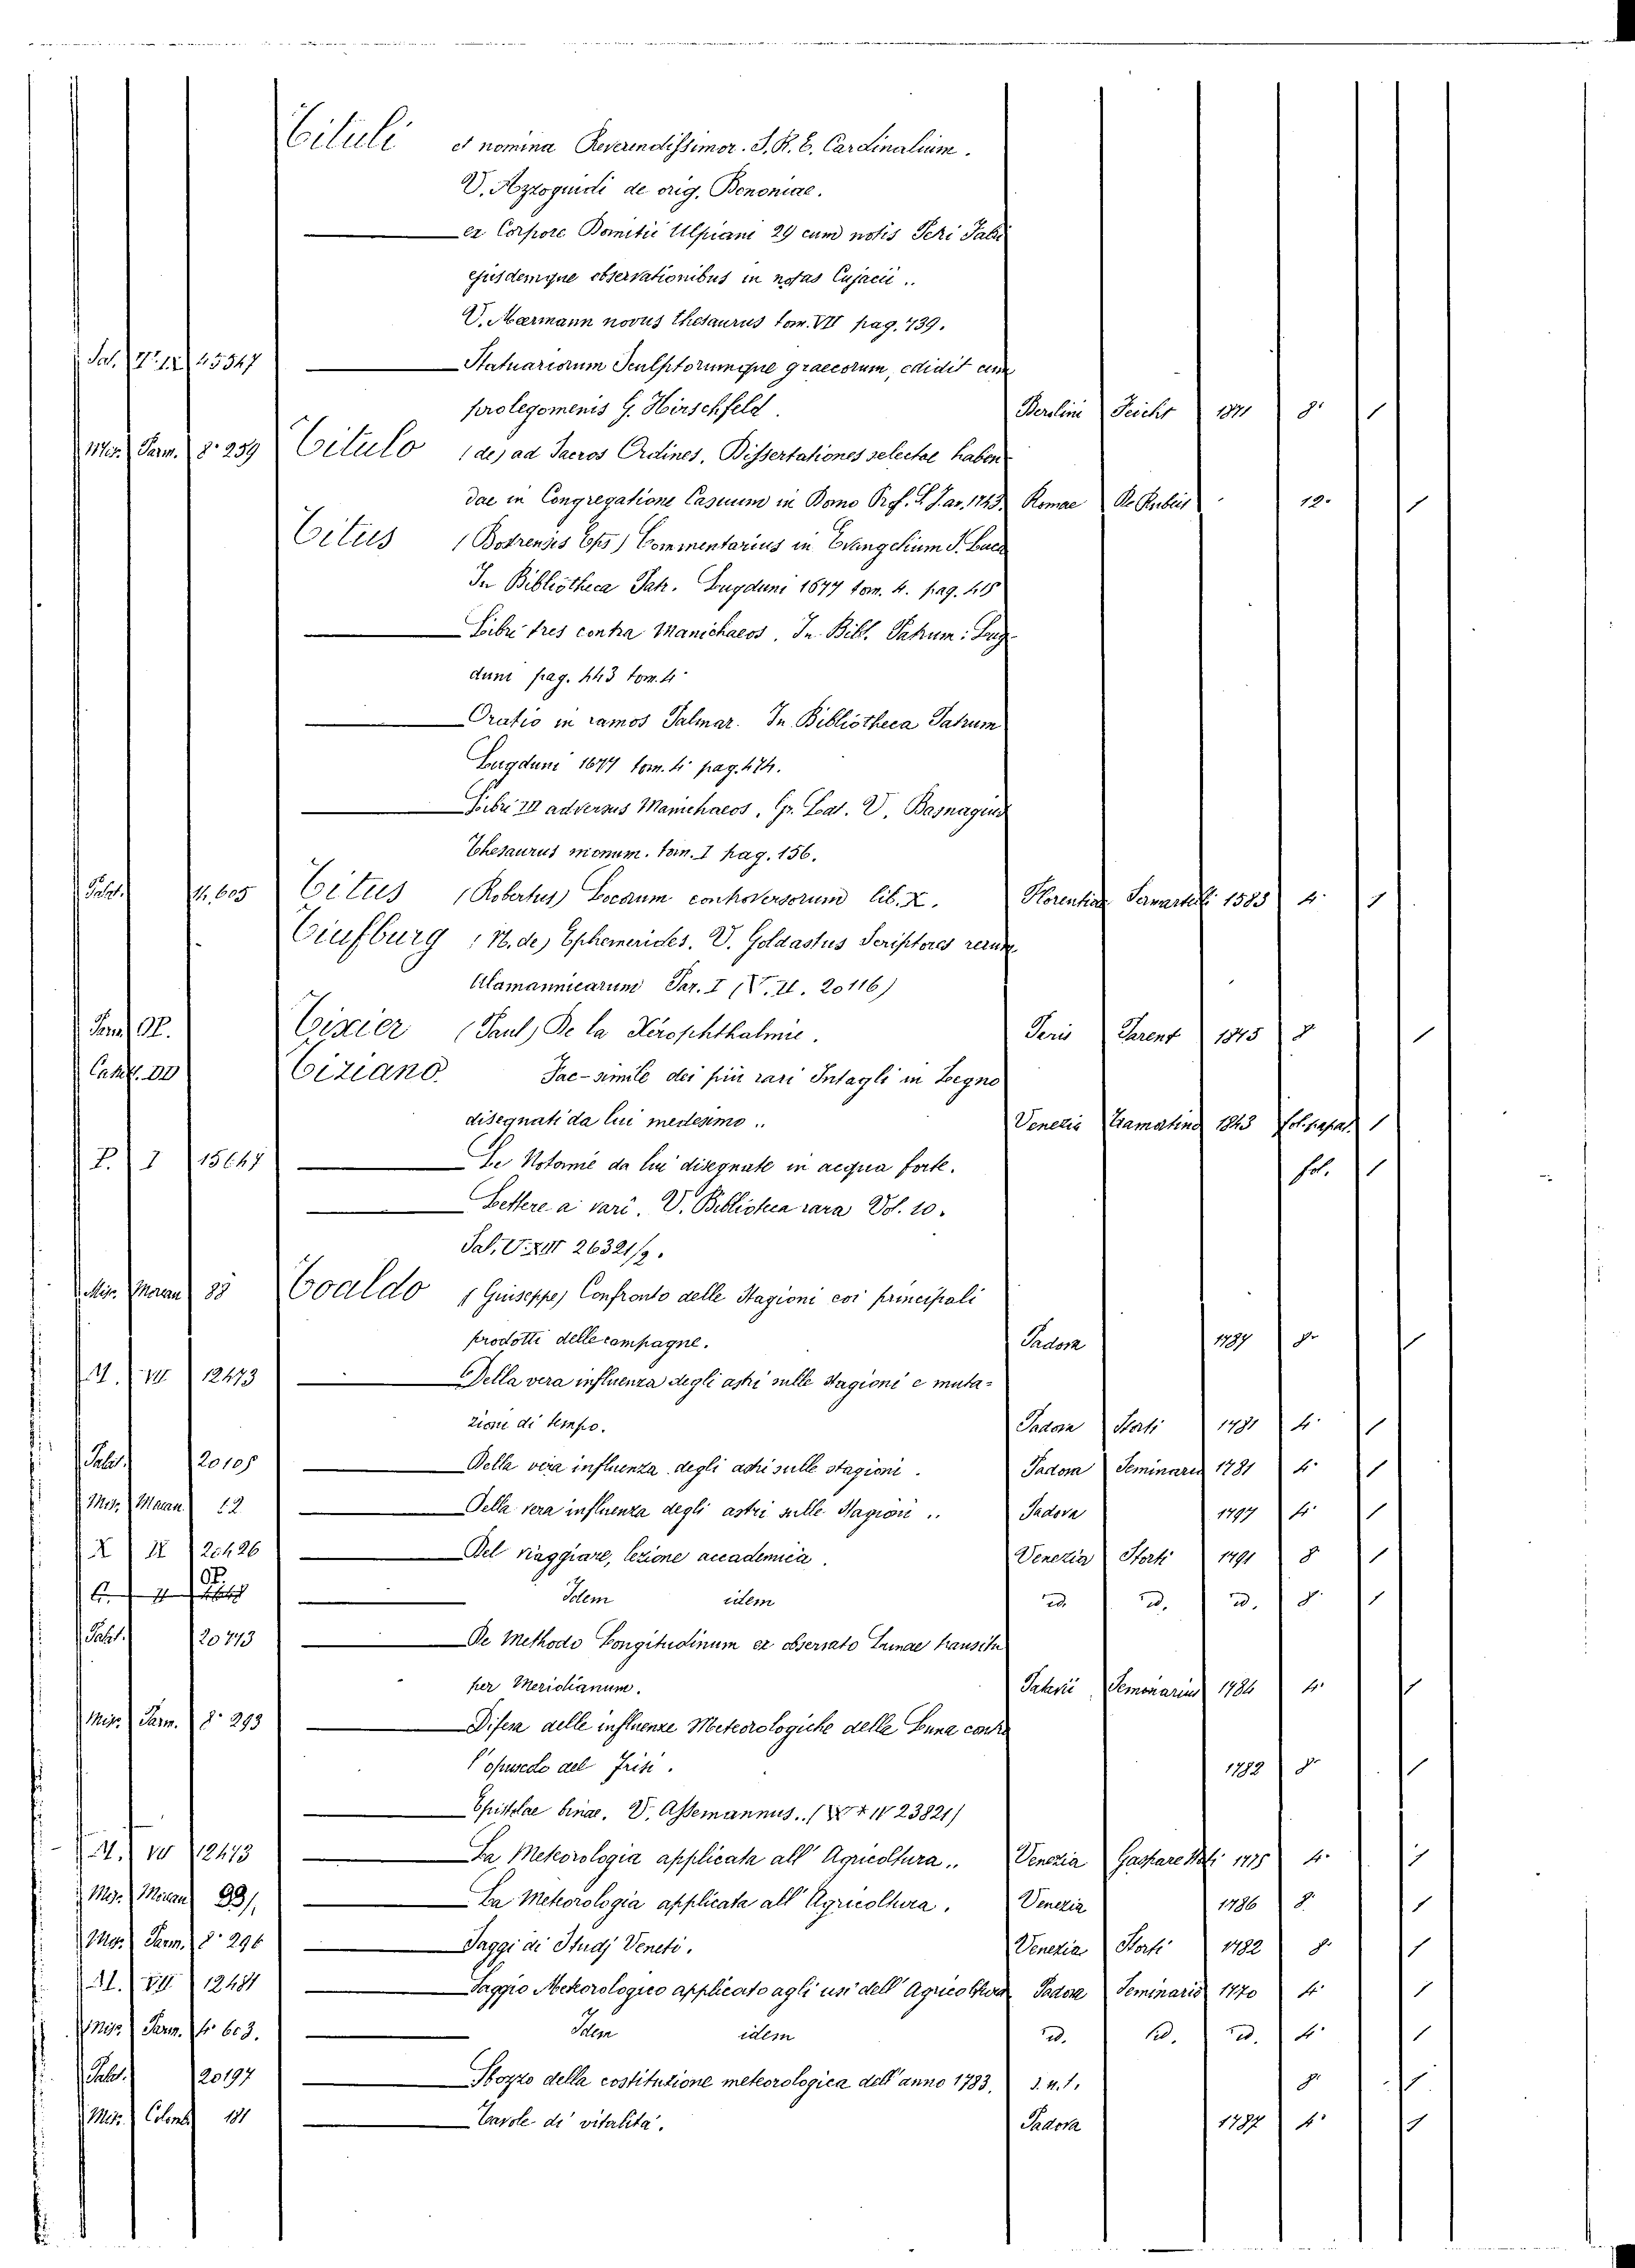 Tituli et nomina Reverendissimor. S. R. E. Cardinalium.
V. Azzoguidi de orig. Bononiae.
——— ex Corpore Domitii Ulpiani 29 cum notis Petri Fabri
ejusdemque observationibus in notas Cujacii..
V. Meermann novus thesaurus tom. VII pag. 739.
Sal. 45347 ——— Statuariorum Sculptorumque graecorum, edidit cum
prolegomenis G. Hirschfeld. Berolini 1871 8° 1
Misc. Parm. 8° 259 Titulo (de) ad Sacros Ordines, Dissertationes selectae haben
dae in Congregatione Casuum in Domo Prof. S. J. an. 1743. Romae De Rubeis 12° 1
Titus (Bostrensis Eps) Commentarius in Evangelium S. Luca
In Bibliotheca Patr. Lugduni 1677 tom. 4. pag. 415
——— Libri tres contra Manichaeos. In Bibl. Patrum: Lug
duni pag. 443 tom. 4°
——— Oratio in ramos Palmar. In Bibliotheca Patrum
Lugduni 1677 tom. 4 pag. 474.
——— Libri III adversus Manichaeos, Gr. Lat. V. Basnagius
Thesaurus monum. tom. I pag. 156.
Palat. 4. 605 Titus (Robertus) Locorum controversorum lib. X. Florentiae Sermartelli 1583 4° 1
Tiufburg (N. de) Ephemerides. V. Goldastus Scriptores rerum
Alamannicarum Par. I (V. II. 20116)
OP. Tixier (Paul) De la Xérophthalmie. Paris Parent 1875 8 1
Tiziano. Fac-simile dei più rari Intagli in Legno
disegnati da lui medesimo.. Venezia 1843 fol. 1
P. I 15647 ——— Le Notomie da lui disegnate in acqua forte. fol. 1
——— Lettere a vari. V. Biblioteca rara Vol. 10.
Sal. V. XIII 26321/2.
Misc. Maran 38 Toaldo (Guiseppe) Confronto delle Stagioni coi principali
prodotti delle campagne. Padova 1787 8° 1
A. VII 12473 ——— Della vera influenza degli astri sulle stagioni e muta=
zioni di tempo. Padova Storti 1781 4° 1
Palat. 20105 ——— Della vera influenza degli astri sulle stagioni. Padova Seminario 1781 4° 1
Misc. Maran 12 ——— Della vera influenza degli astri sulle Stagioni.. Padova 1797 4° 1
X IX 20426 ——— Del viaggiare, lezione accademica. Venezia Storti 1791 8 1
OP. ——— Idem idem id. id. id. 8° 1
Palat. 20773 ——— De Methodo Longitudinum ex observato Lunae transitu
per Meridianum. Patavii Seminarius 1784 4° 1
Misc. Parm. 8° 293 ——— Difesa delle influenze Meteorologiche della Luna contro
l'opuscolo del Frisi. 1782 8° 1
——— Epistolae binae. V. Assemannus.. ( 23821)
A. VII 12473 ——— La Meteorologia applicata all' Agricoltura.. Venezia Gaspare Storti 1775 4° 1
Misc. Maran 99/. ——— La Meteorologia applicata all' Agricoltura. Venezia 1786 8° 1
Misc. Parm. 8° 296 ——— Saggi di Studj Veneti. Venezia Storti 1782 8° 1
A. VII 12481 ——— Saggio Meteorologico applicato agli usi dell' Agricoltura Padova Seminario 1770 4° 1
Misc. Parm. 4° 603. ——— Idem idem id. id. id. 4° 1
Palat. 20197 ——— Sbozzo della costituzione meteorologica dell' anno 1783. s. n. t. 8° 1
Misc. Colomb 181 ——— Tavole di vitalità. Padova 1787 4° 1